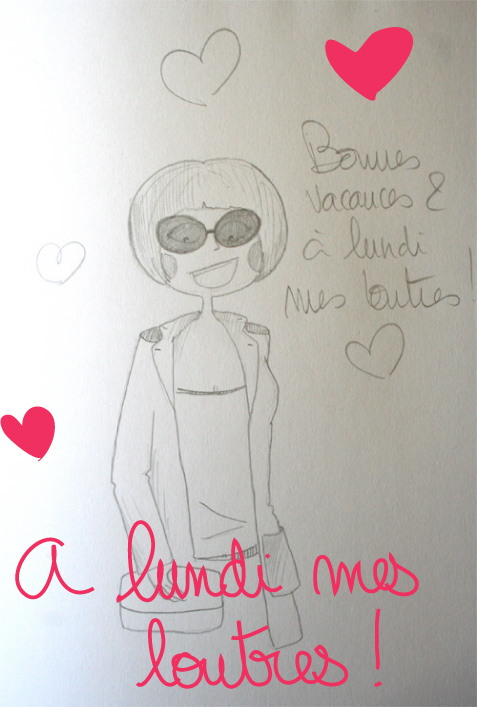 Bonnes
vacances &
à lundi
mes loutres !
A lundi mes
loutres !